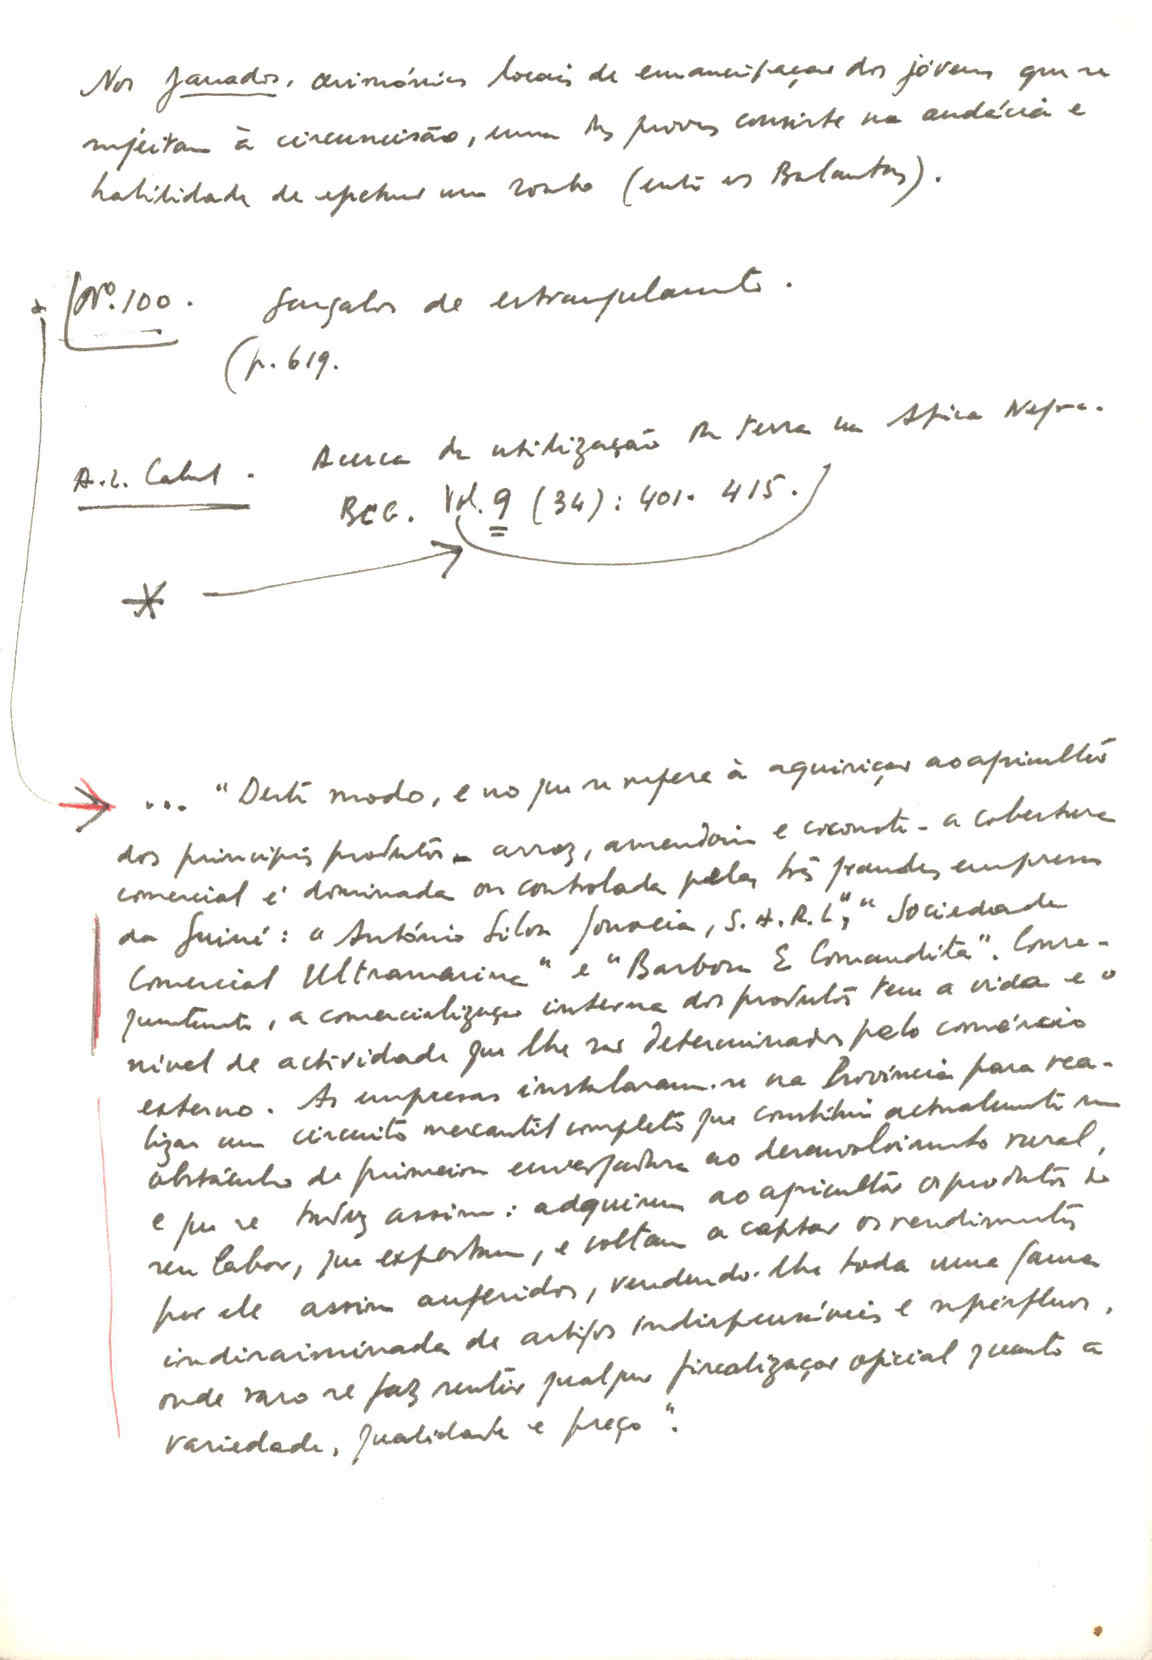 Nos fanados, cerimónias locais de emancipação dos jóvens que se
sujeitam à circuncisão, uma das provas consiste na audácia e
habilidade de efectuar um roubo (entre os Balantas).
* Nº. 100. de estrangulamento.
(p. 619.
A. L. Cabral. Acerca da utilização da terra na Africa Negra.
BCG. Vol. 9 (34): 401 - 415.
*
... "Deste modo, e no que se refere à aquisição ao agricultor
dos principais produtos - arroz, amendoim e coconote - a cobertura
comercial é dominada ou controlada pelas três grandes empresas
da Guiné: "António Silva Gouveia, S.A.R.L.", "Sociedade
Comercial Ultramarina" e "Barbosa & Comandita". Conse-
quentemente, a comercialização interna dos produtos tem a vida e o
nível de actividade que lhe são determinados pelo comércio
externo. As empresas instalaram-se na Província para rea-
lizar um circuito mercantil completo que constitui actualmente um
obstáculo de primeira envergadura ao desenvolvimento rural,
e que se traduz assim: adquirem ao agricultor os produtos do
seu labor, que exportam, e voltam a captar os rendimentos
por ele assim auferidos, vendendo-lhe toda uma gama
indiscriminada de artigos indispensáveis e supérfluos,
onde raro se faz sentir qualquer fiscalização oficial quanto a
variedade, qualidade e preço".